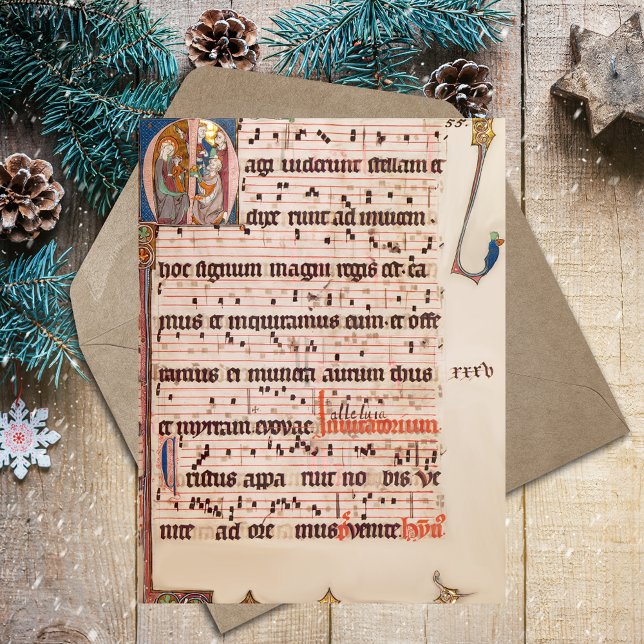 55.
Magi viderunt stellam et
dixe runt ad invicem.
hoc signum magni regis est. ea
mus et inquiramus eum. et offe
ramus ei munera aurum thus
xxxv
alleluia
et myrram. evovae. Invitatorium
Cristus appa ruit no bis. Ve
nite ad ore mus p̄s venite. hȳn̄